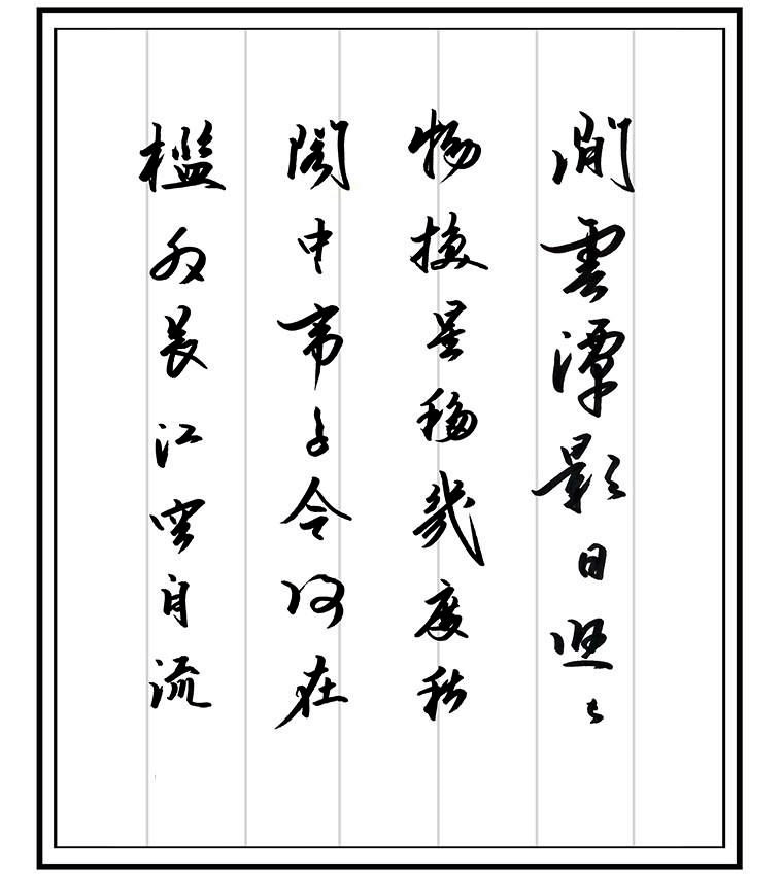 閒雲潭影日悠々
物換星移幾度秋
閣中帝子今何在
檻外長江空自流